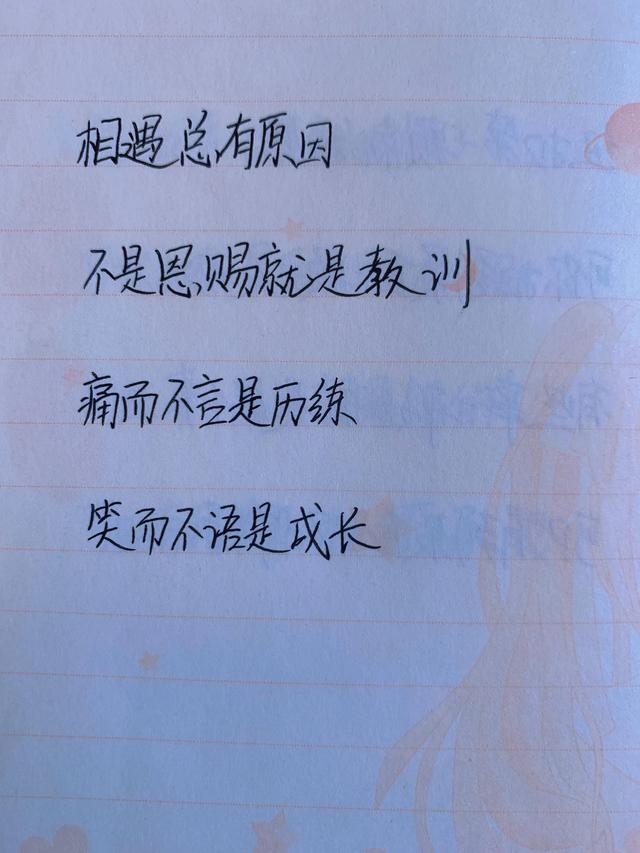 相遇总有原因
不是恩赐就是教训
痛而不言是历练
笑而不语是成长